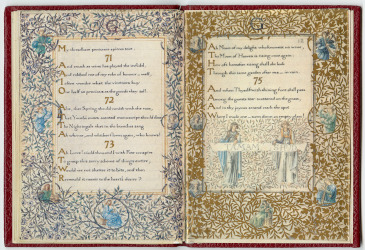 My threadbare penitence apieces tore.
71
And much as Wine has played the infidel
And robbed me of my robe of honour, well,
I often wonder what the vintners buy
One half so precious as the goods they sell.
72
Alas, that Spring should vanish with the rose,
That Youth's sweet scented manuscript should close
The Nightingale that in the branches sang,
Ah whence, and whither flown again, who knows?
73
Ah Love! could thou and I with Fate conspire
To grasp this sorry scheme of things entire,
Would we not shatter it to bits, and then
Remould it nearer to the heart's desire?
Ah Moon of my delight who knowest no wane,
The Moon of Heaven is rising once again.
How oft hereafter rising shall she look
Through this same garden after me in vain.
75
And when Thyself with shining foot shall pass
Among the guests star scattered on the grass,
And in thy joyous errand reach the spot
Where I made one, turn down an empty glass!